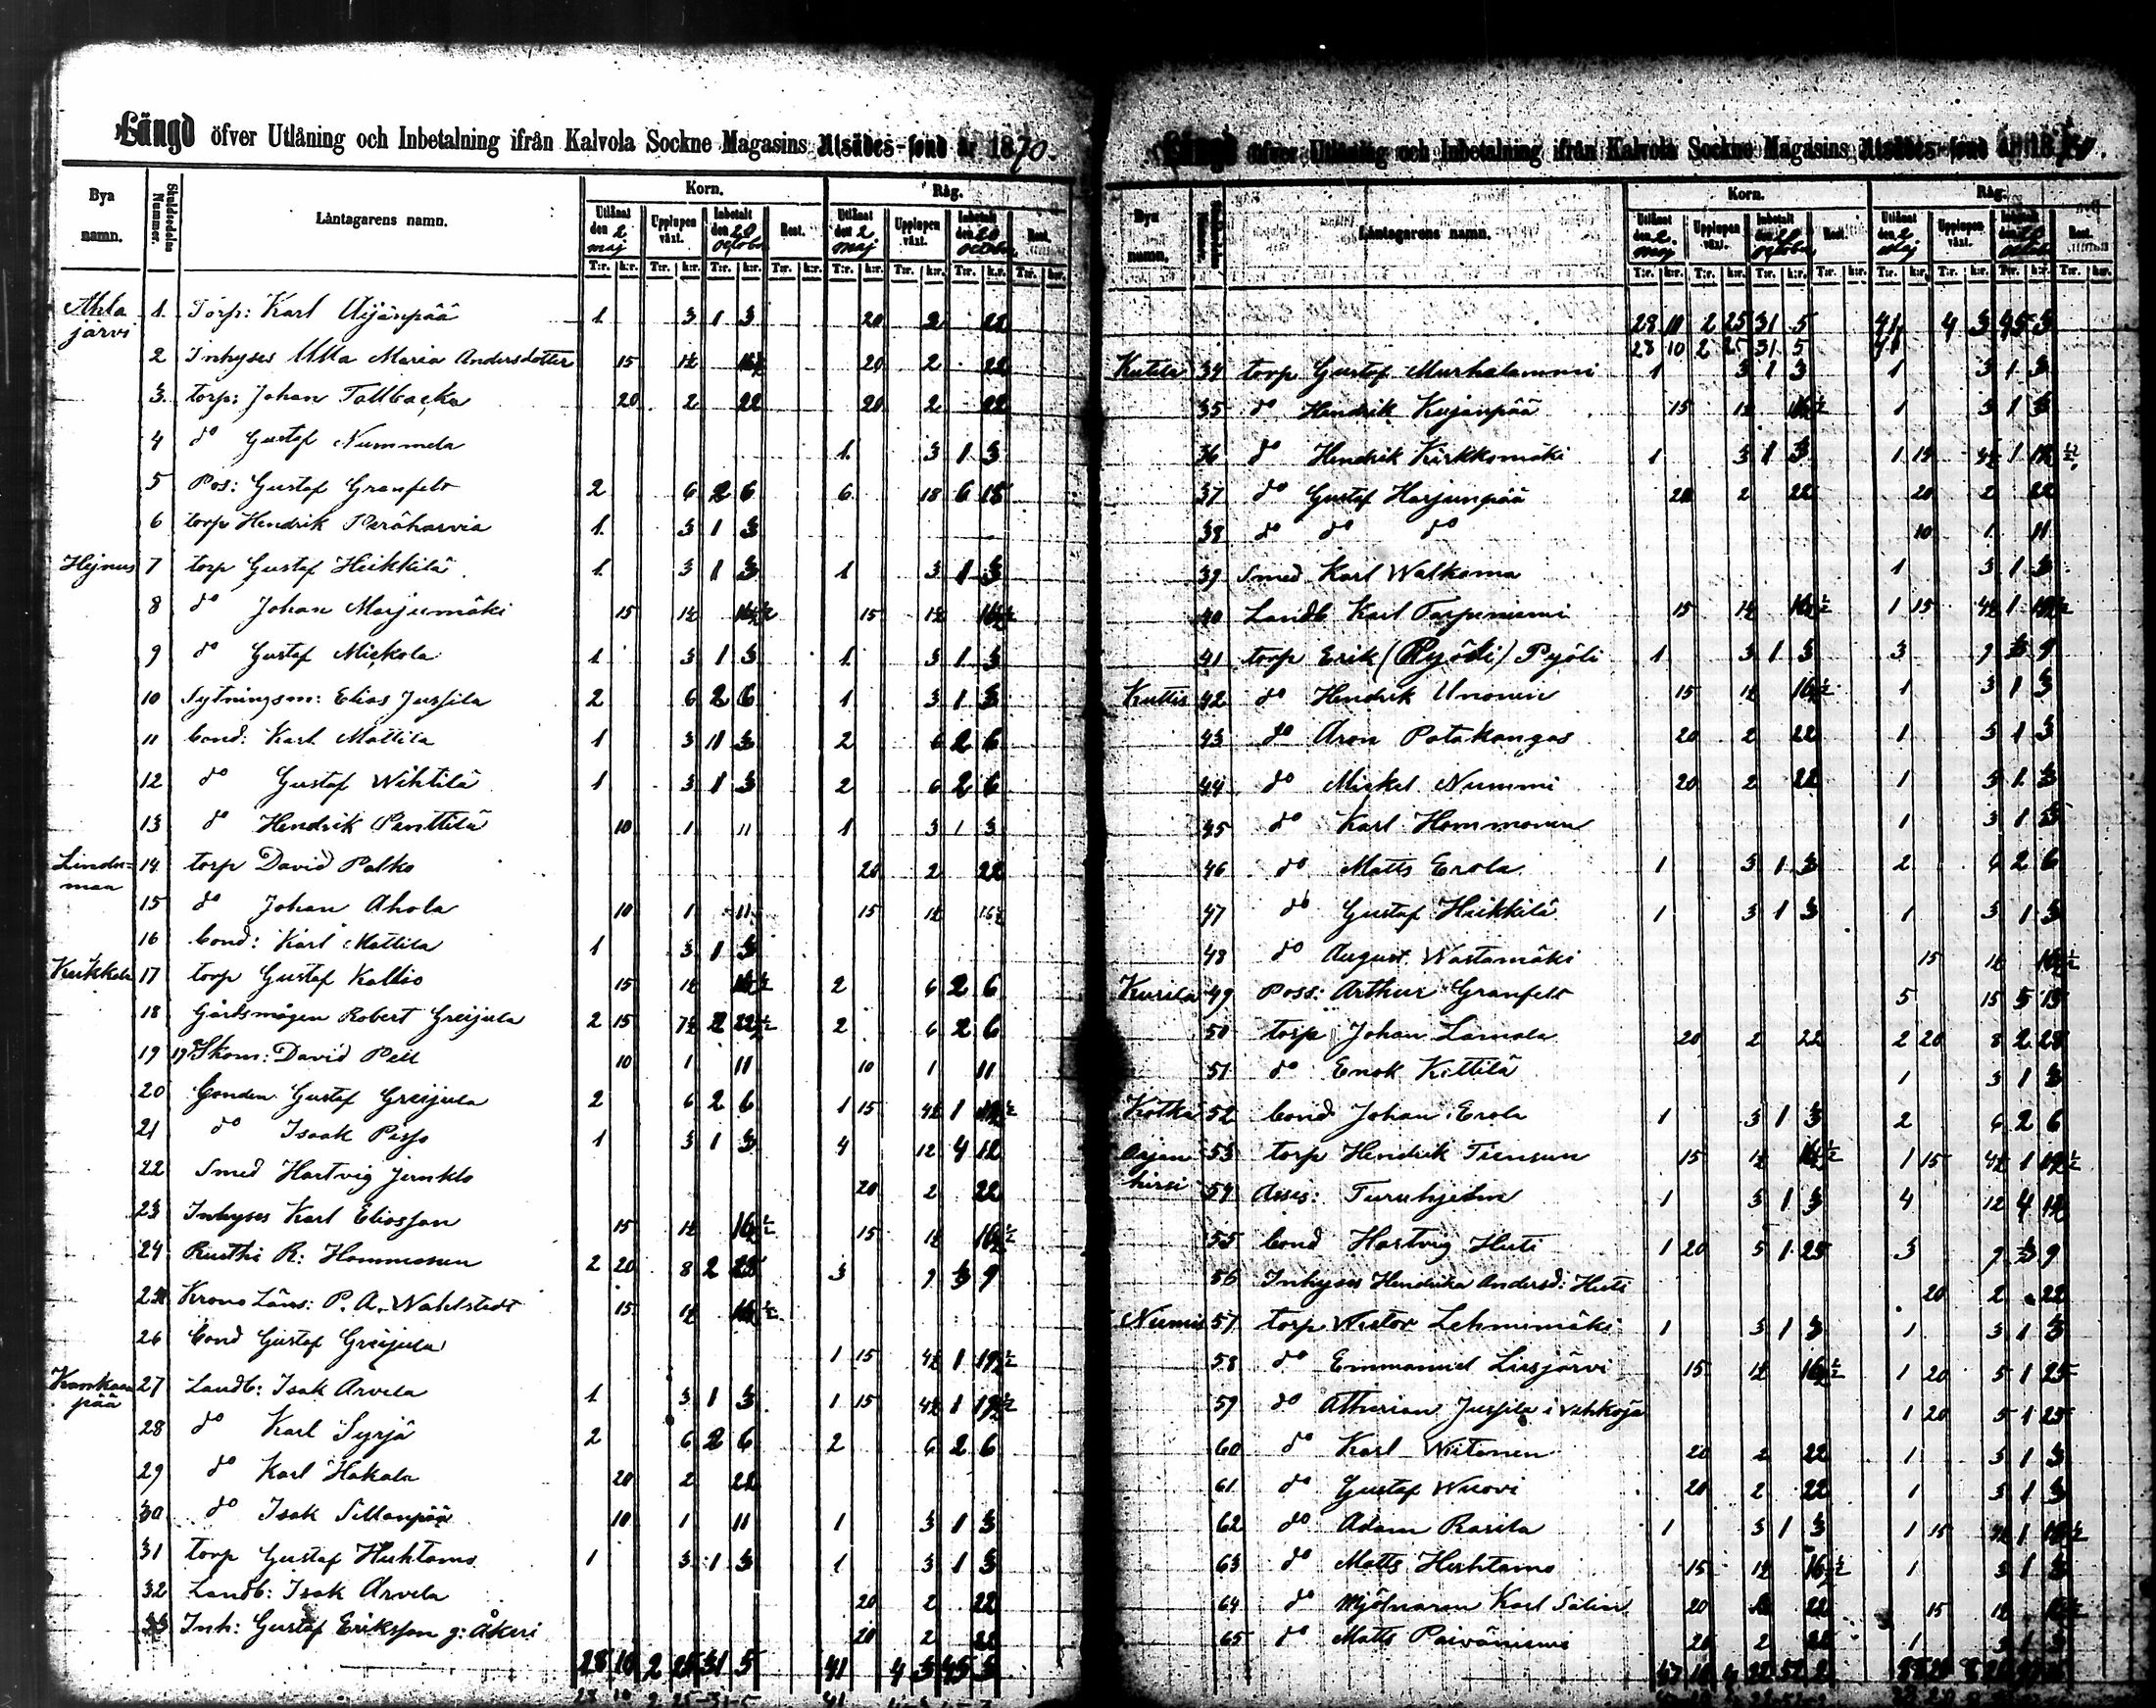 Längd öfver Utlåning och Inbetalning ifrån Kalvola Sockne Magasins Utsädes-fond år 1870.
Bya namn. Skuldsedelns Nummer. Låntagarens namn. Korn. Råg.
Utlånat den 2 maj Upplupen växt. Inbetalt den 20 october Rest. Utlånat den 2 maj Upplupen växt. Inbetalt den 20 october Rest.
T:r. k:r. T:r. k:r. T:r. k:r. T:r. k:r. T:r. k:r. T:r. k:r. T:r. k:r. T:r. k:r.
Ahlajärvi 1 Torp: Karl Äijänpää 1 3 1 3 20 2 22
2 Inhyses Ulla Maria Andersdotter 15 1½ 16½ 20 2 22
3 torp: Johan Tallbacka 20 2 22 20 2 22
4 do Gustaf Nummela 1 3 1 3
5 Pos: Gustaf Granfelt 2 6 2 6 6 18 6 18
6 torp Hendrik Peräharvia 1 3 1 3
Hejnus 7 torp Gustaf Heikkilä 1 3 1 3 1 3 1 3
8 do Johan Marjumäki 15 1½ 16½ 15 1½ 16½
9 do Gustaf Mickola 1 3 1 3 1 3 1 3
10 Sytningsm: Elias Jussila 2 6 2 6 1 3 1 3
11 bond: Karl Mattila 1 3 1 3 2 6 2 6
12 do Gustaf Wihtilä 1 3 1 3 2 6 2 6
13 do Hendrik Penttilä 10 1 11 1 3 1 3
Lindumaa 14 torp David Palko 20 2 22
15 do Johan Ahola 10 1 11 15 1½ 16½
16 bond: Karl Mattila 1 3 1 3
Kukkola 17 torp Gustaf Kallio 15 1½ 16½ 2 6 2 6
18 Gårdsmågen Robert Greijula 2 15 7½ 2 22½ 2 6 2 6
19 Skom: David Pell 10 1 11 10 1 11
20 Bonden Gustaf Greijula 2 6 2 6 1 15 4½ 1 19½
21 do Isaak Pisso 1 3 1 3 4 12 4 12
22 Smed Hartvig Junklo 20 2 22
23 Inhyses Karl Eliasson 15 1½ 16½ 15 1½ 16½
24 Rusthi R: Hommossun 2 20 8 2 28 3 9 3 9
25 Krono Läns: P. A. Wahlstedt 15 1½ 16½
26 Bond Gustaf Greijula 1 15 4½ 1 19½
Kankaanpää 27 Landb: Isak Arvela 1 3 1 3 1 15 4½ 1 19½
28 do Karl Syrjä 2 6 2 6 2 6 2 6
29 do Karl Hakala 20 2 22
30 do Isak Sillanpää 10 1 11 1 3 1 3
31 torp Gustaf Huhtamo 1 3 1 3 1 3 1 3
32 Landb: Isak Arvela 20 2 22
33 Inh: Gustaf Eriksson g: Åkeri 20 2 22
28 10 2 25 31 5 41 4 3 45 3
Längd öfver Utlåning och Inbetalning ifrån Kalvola Sockne Magasins Utsädes-fond år 1870.
Bya namn. Låntagarens namn. Korn. Råg.
Utlånat den 2 maj Upplupen växt. Inbetalt den 20 october Rest. Utlånat den 2 maj Upplupen växt. Inbetalt den 20 Rest.
T:r. k:r. T:r. k:r. T:r. k:r. T:r. k:r. T:r. k:r. T:r. k:r. T:r. k:r. T:r. k:r.
28 10 2 25 31 5 41 4 3 45 3
28 10 2 25 31 5 41
Kutila 34 torp Gustaf Murhalammi 1 3 1 3 1 3 1 3
35 do Hendrik Kujanpää 15 1½ 16½ 1 3 1 3
36 do Hendrik Kirkkomäki 1 3 1 3 1 15 4½ 1 19½
37 do Gustaf Harjunpää 20 2 22 20 2 22
38 do do do 10 1 11
39 Smed Karl Walkama 1 3 1 3
40 Landb Karl Torpeniemi 15 1½ 16½ 1 15 4½ 1 19½
41 torp Erik (Pyödi) Pyöli 1 3 1 3 3 9 3 9
Kuttis 42 do Hendrik Unonen 15 1½ 16½ 1 3 1 3
43 do Aron Patakangas 20 2 22 1 3 1 3
44 do Mickel Nummi 20 2 22 1 3 1 3
45 do Karl Hommonen 1 3 1 3
46 do Matts Erola 1 3 1 3 2 6 2 6
47 do Gustaf Heikkilä 1 3 1 3 1 3 1 3
48 do August Wastamäki 15 1½ 16½
Kurila 49 Poss: Arthur Granfelt 5 15 5 15
50 torp Johan Lamala 20 2 22 2 20 8 2 28
51 do Enok Kittilä 1 3 1 3
Kotka 52 bond Johan Erola 1 3 1 3 2 6 2 6
Arjanhirsi 53 torp Hendrik Tiensun 15 1½ 16½ 1 15 4½ 1 19½
54 Asses: Furuhjelm 1 3 1 3 4 12 4 12
55 bond Hartvig Huti 1 20 5 1 25 3 9 3 9
56 Inhyses Hendrika Andersd: Huti 20 2 22
Niemis 57 torp Wictor Lehmimäki 1 3 1 3 1 3 1 3
58 do Emmanuel Liesjärvi 15 1½ 16½ 1 20 5 1 25
59 do Jussila i 1 20 5 1 25
60 do Karl Wiitanen 20 2 22 1 3 1 3
61 do Gustaf Wuori 20 2 22 1 3 1 3
62 do Adam Rasila 1 3 1 3 1 15 4½ 1 19½
63 do Matts Huhtamo 15 1½ 16½ 1 3 1 3
64 do Mjölnaren Karl Salin 20 2 22 15 1½ 16½
65 do Matts Paivaniemi 20 2 22 1 3 1 3